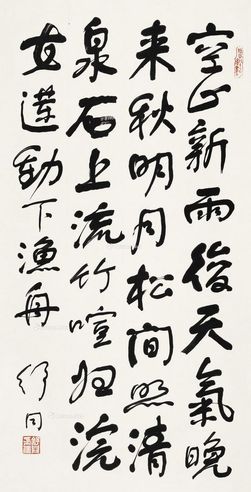 空山新雨後天氣晚
来秋明月松間照清
泉石上流竹喧归浣
女蓮動下漁舟 舒同